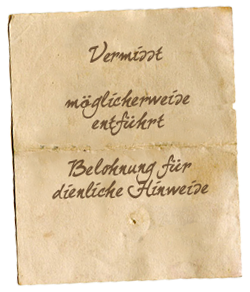 Vermisst
möglicherweise
entführt
Belohnung für
dienliche Hinweise